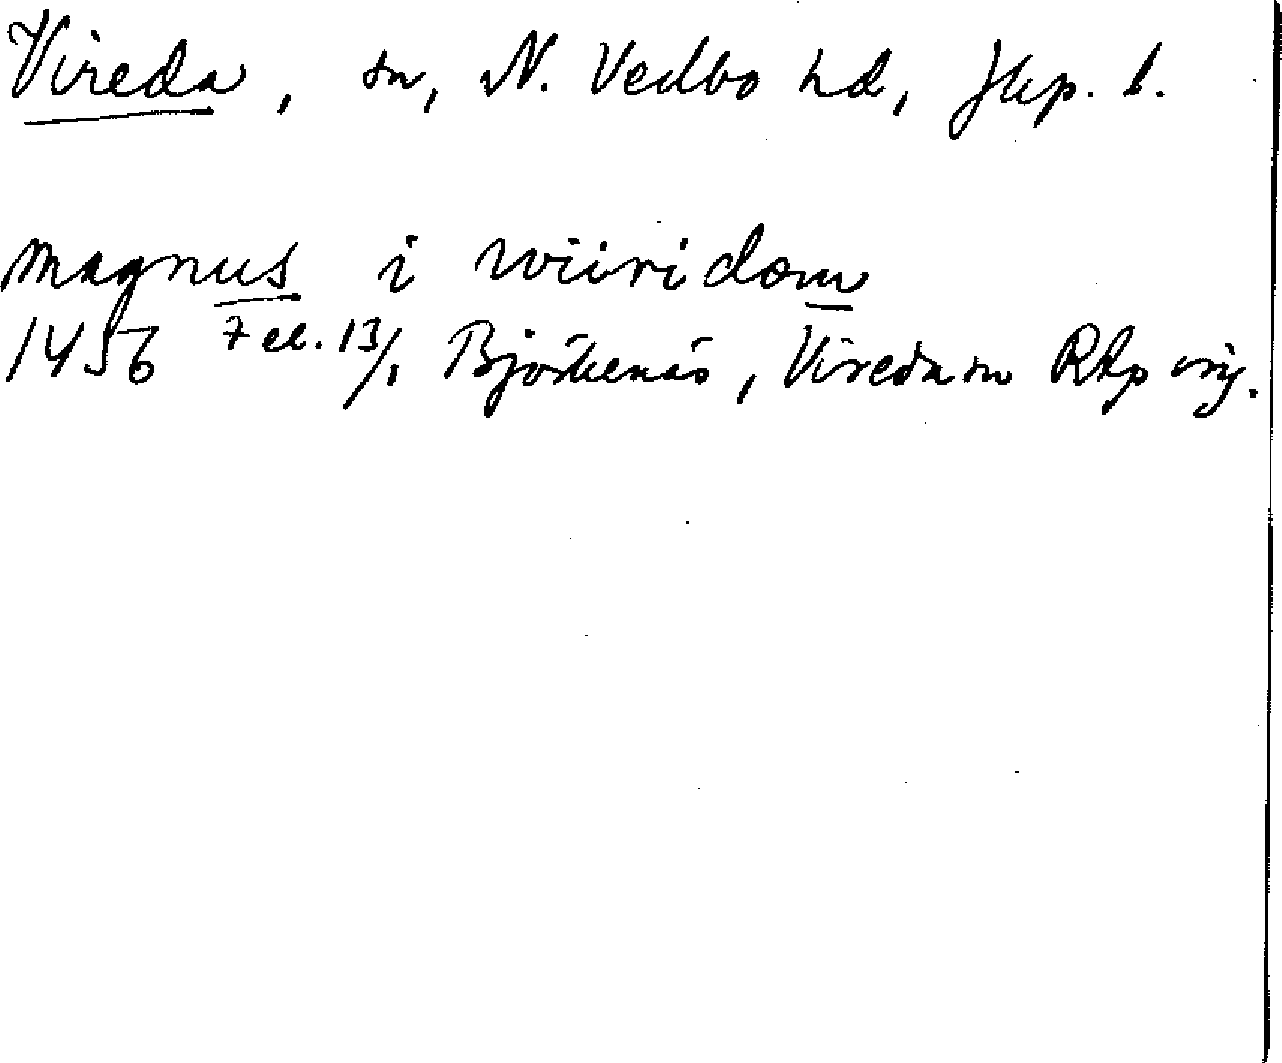 Vireda, sn, N. Vedbo hd, Jkp. l.
magnus i wiiridom
1456 7 el. 13/1 Björkenäs, Vireda sn RAp orig.